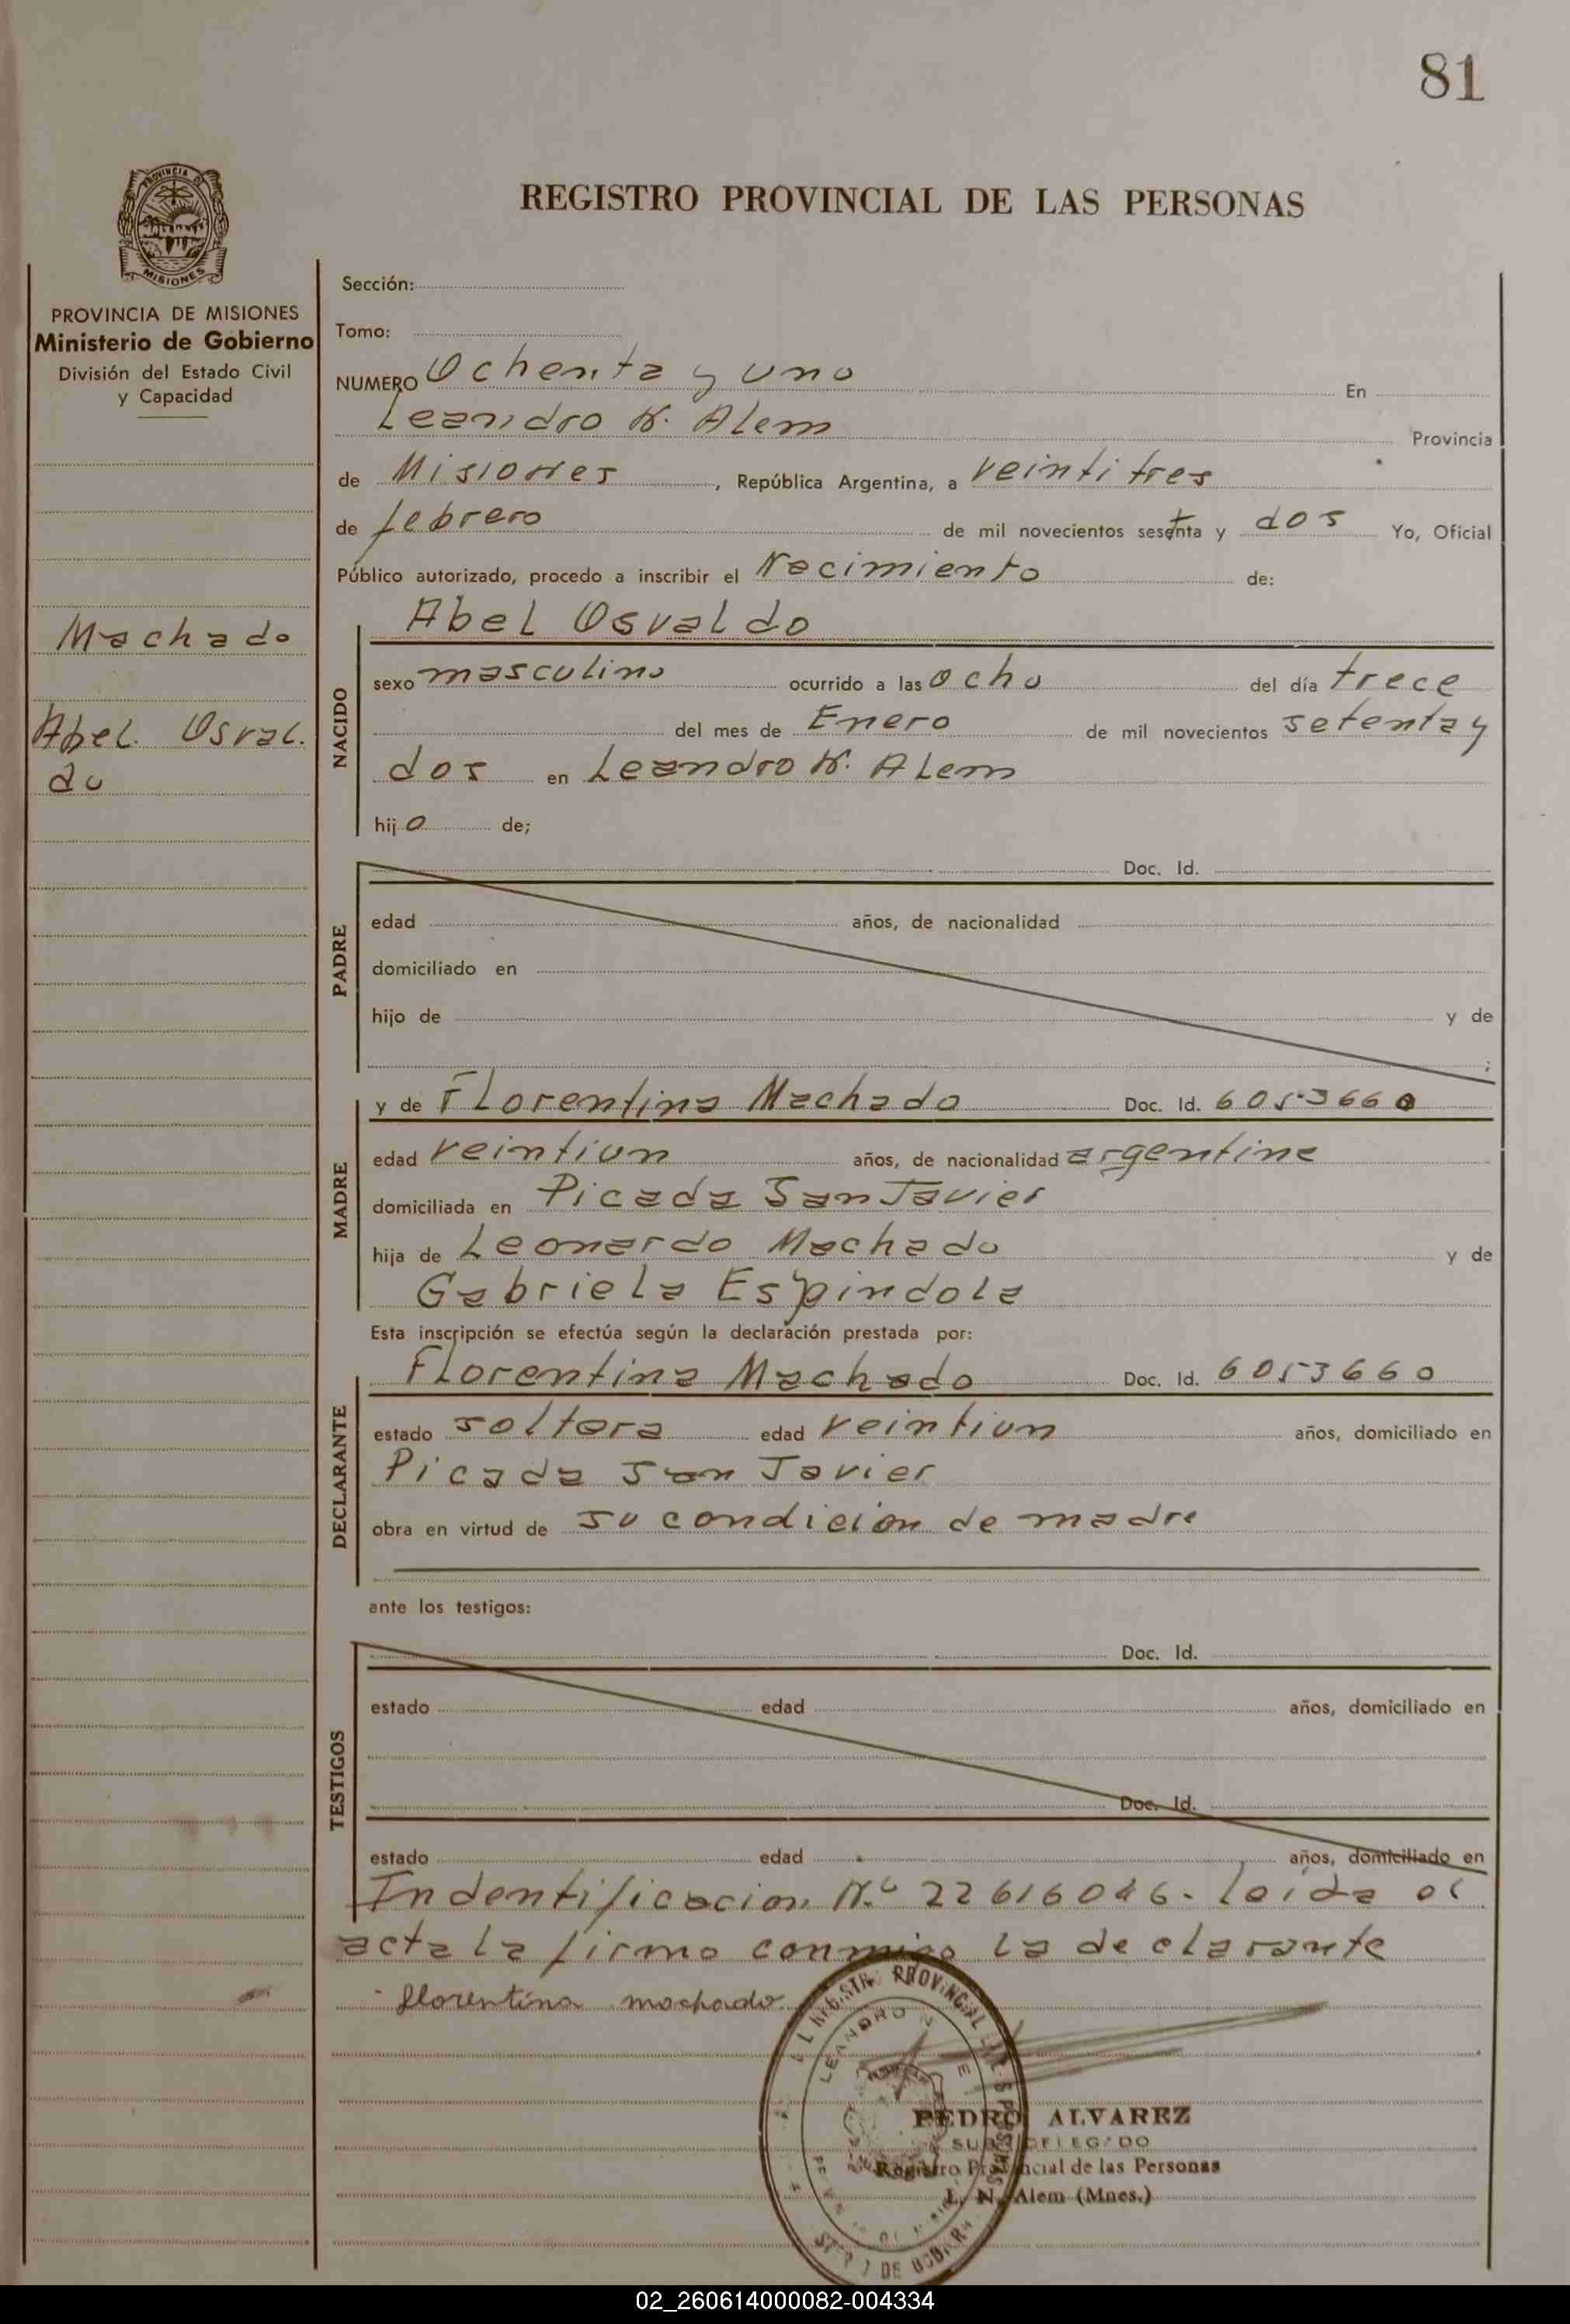 81
REGISTRO PROVINCIAL DE LAS PERSONAS
PROVINCIA DE
MISIONES
PROVINCIA DE MISIONES
Ministerio de Gobierno
División del Estado Civil
y Capacidad
Machado
Abel Osval.
do
Sección:
Tomo:
NUMERO Ochenta y uno En
Leandro N. Alem Provincia
de Misiones, República Argentina, a veintitres
de febrero de mil novecientos setenta y dos Yo, Oficial
Público autorizado, procedo a inscribir el Nacimiento de:
NACIDO
Abel Osvaldo
sexo masculino ocurrido a las ocho del día trece
del mes de Enero de mil novecientos setenta y
dos en Leandro N. Alem
hijo de;
PADRE
Doc. Id.
edad años, de nacionalidad
domiciliado en
hijo de y de
;
MADRE
y de Florentina Machado Doc. Id. 6053660
edad veintiun años, de nacionalidad argentina
domiciliada en Picada San Javier
hija de Leonardo Machado y de
Gabriela Espindola
Esta inscripción se efectúa según la declaración prestada por:
DECLARANTE
Florentina Machado Doc. Id. 6053660
estado soltera edad veintiun años, domiciliado en
Picada San Javier
obra en virtud de su condicion de madre
ante los testigos:
TESTIGOS
Doc. Id.
estado edad años, domiciliado en
Doc. Id.
estado edad años, domiciliado en
Indentificacion N.º 22616046. leida el
acta la firma conmigo la declarante
florentina machado
LEANDRO N
PEDRO ALVAREZ
SUB DELEGADO
Registro Provincial de las Personas
L. N. Alem (Mnes.)
02_260614000082-004334